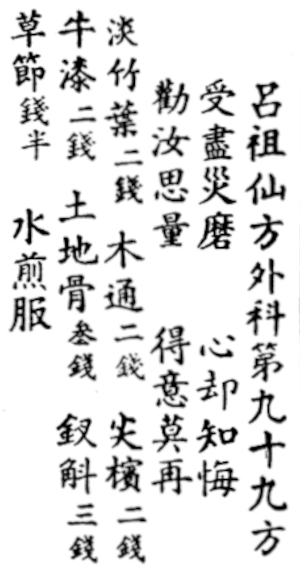 呂祖仙方外科第九十九方
受盡災磨 心却知悔
勸汝思量 得意莫再
淡竹葉二錢 木通二錢 尖檳二錢
牛漆二錢 土地骨叁錢 釵斛三錢
草節錢半 水煎服